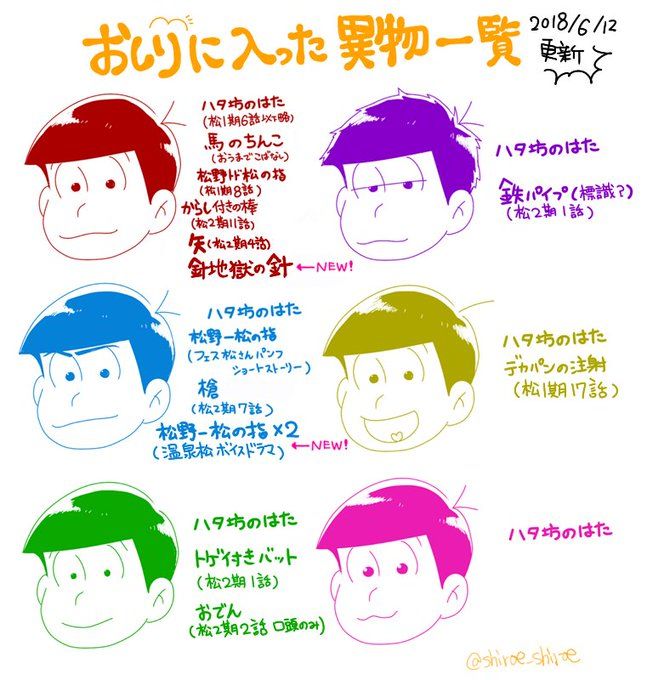 おしりに入った異物一覧
2018/6/12
更新
ハタ坊のはた
(松1期6話以下略)
馬のちんこ
(おうまでこばなし)
松野トド松の指
(松1期8話)
からし付きの棒
(松2期11話)
矢(松2期4話)
針地獄の針 ←NEW!
ハタ坊のはた
鉄パイプ(標識?)
(松2期1話)
ハタ坊のはた
松野一松の指
(フェス松さんパンフ
ショートストーリー)
槍
(松2期7話)
松野一松の指×2
(温泉松ボイスドラマ) ←NEW!
ハタ坊のはた
デカパンの注射
(松1期17話)
ハタ坊のはた
トゲ付きバット
(松2期1話)
おでん
(松2期2話 口頭のみ)
ハタ坊のはた
@shiroe_shiroe